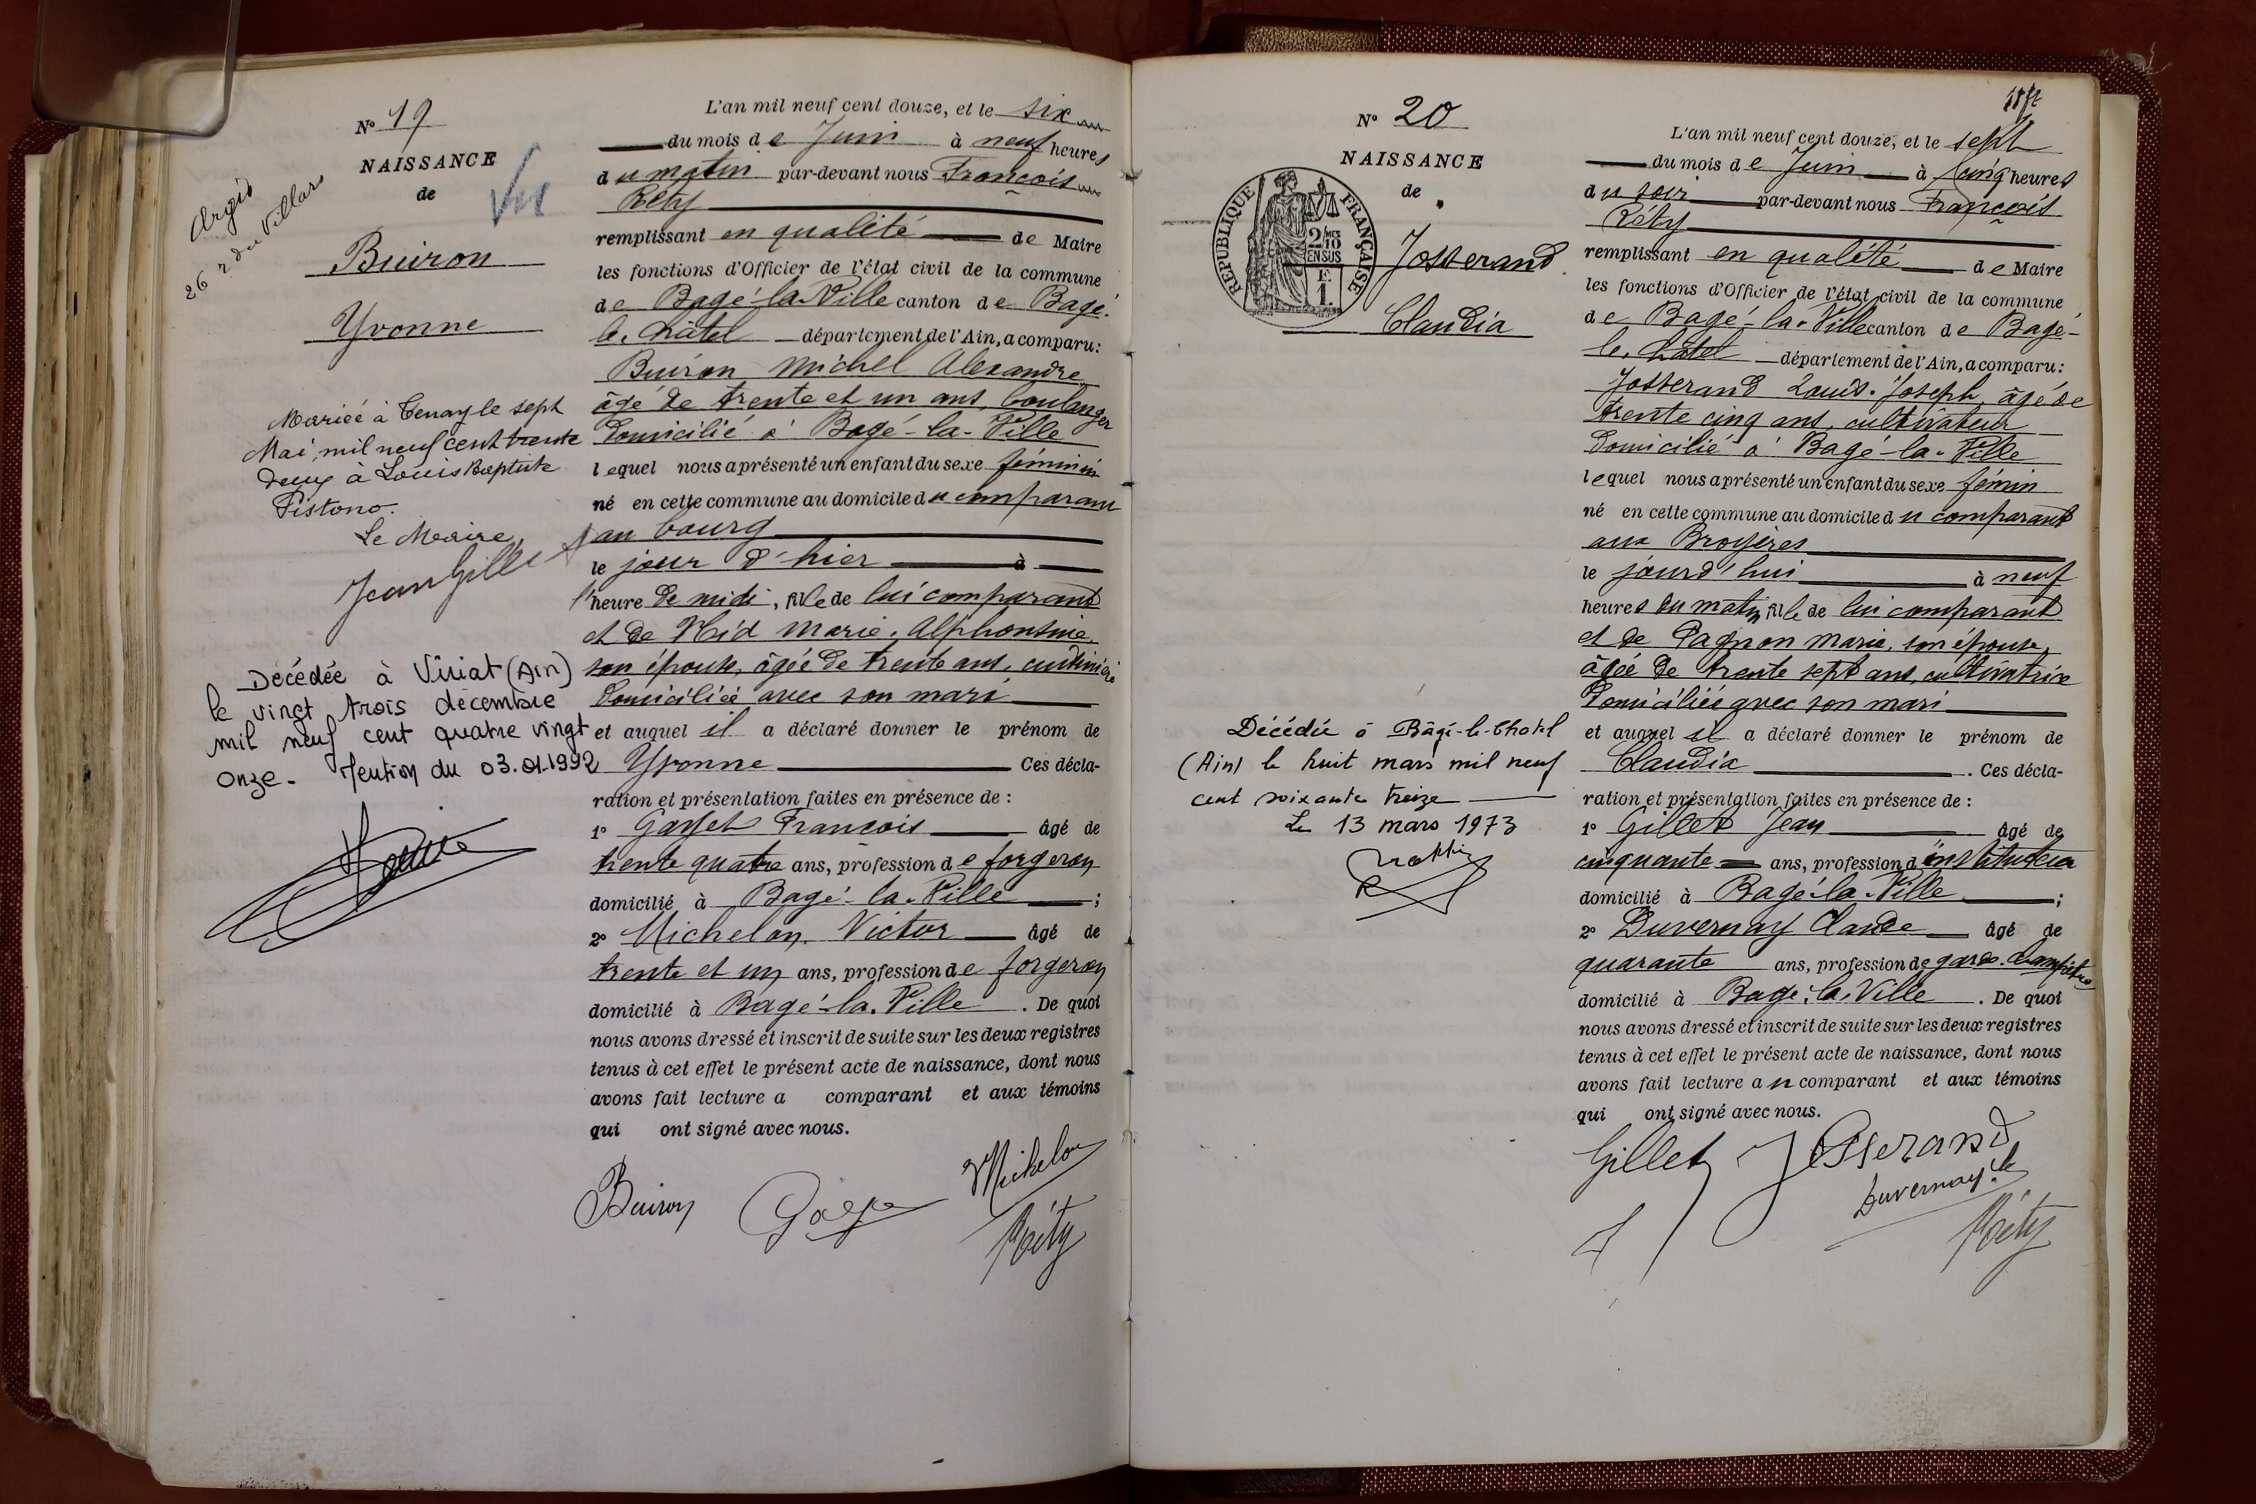 Nº 19
NAISSANCE
de
Vu
Argis
26 r du Villars
Buiron
Yvonne
Mariée à Tenay le sept
Mai mil neuf cent trente
deux à Louis Baptiste
Pistono.
Le Maire,
Jean Gillet
Décédée à Viriat (Ain)
le vingt trois décembre
mil neuf cent quatre vingt
onze. Mention du 03.01.1992
L'an mil neuf cent douze, et le six
du mois de Juin à neuf heures
du matin par-devant nous François
Réty
remplissant en qualité de Maire
les fonctions d'Officier de l'état civil de la commune
de Bagé-la-Ville canton de Bagé-
le-Châtel département de l'Ain, a comparu:
Buiron Michel Alexandre
âgé de trente et un ans, boulanger
domicilié à Bagé-la-Ville
lequel nous a présenté un enfant du sexe féminin
né en cette commune au domicile du comparant
au bourg
le jour d'hier à
l'heure de midi, fille de lui comparant
et de Marie Alphonsine,
son épouse, âgée de trente ans, cuisinière
domiciliée avec son mari
et auquel il a déclaré donner le prénom de
Yvonne Ces décla-
ration et présentation faites en présence de :
1º François âgé de
trente quatre ans, profession de forgeron
domicilié à Bagé-la-Ville ;
2º Michelon Victor âgé de
trente et un ans, profession de forgeron
domicilié à Bagé-la-Ville . De quoi
nous avons dressé et inscrit de suite sur les deux registres
tenus à cet effet le présent acte de naissance, dont nous
avons fait lecture a comparant et aux témoins
qui ont signé avec nous.
Buiron Michelon
Réty
Nº 20
NAISSANCE
de
RÉPUBLIQUE FRANÇAISE
2/10
EN SUS
F.
1.
Josserand
Claudia
Décédée à Bâgé-le-Châtel
(Ain) le huit mars mil neuf
cent soixante treize
Le 13 mars 1973
L'an mil neuf cent douze, et le sept
du mois de Juin à cinq heures
du soir par-devant nous François
Réty
remplissant en qualité de Maire
les fonctions d'Officier de l'état civil de la commune
de Bagé-la-Ville canton de Bagé-
le-Châtel département de l'Ain, a comparu:
Josserand Louis-Joseph, âgé de
trente cinq ans, cultivateur
domicilié à Bagé-la-Ville
lequel nous a présenté un enfant du sexe fémin
né en cette commune au domicile du comparant
aux Broyères
le jourd'hui à neuf
heures du matin fille de lui comparant
et de Pagnon Marie, son épouse,
âgée de trente sept ans, cultivatrice
domiciliée avec son mari
et auquel il a déclaré donner le prénom de
Claudia . Ces décla-
ration et présentation faites en présence de :
1º Gillet Jean âgé de
cinquante ans, profession d'instituteur
domicilié à Bagé-la-Ville ;
2º Duvernay Claude âgé de
quarante ans, profession de garde-champêtre
domicilié à Bagé-la-Ville . De quoi
nous avons dressé et inscrit de suite sur les deux registres
tenus à cet effet le présent acte de naissance, dont nous
avons fait lecture au comparant et aux témoins
qui ont signé avec nous.
Gillet Josserand
Duvernay Cle
Réty